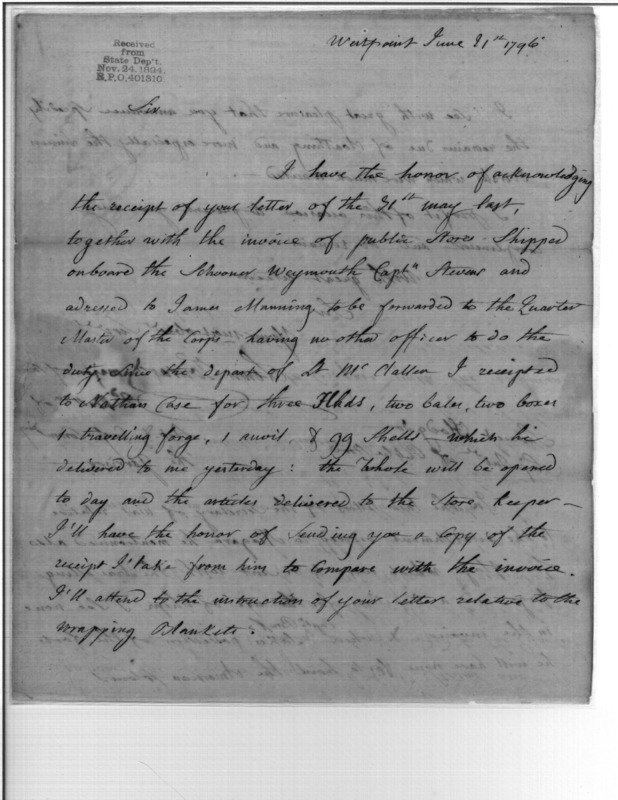 Received
from
State Dep't.
Nov. 24. 1894,
R.P.O. 401310
Westpoint June 21st 1796
Sir
I have the honor of acknowledging
the receipt of your letter of the 31st may last,
together with the invoice of public Stores Shipped
onboard the Schooner Weymouth Captn Stevens and
adressed to James Manning, to be forwarded to the Quarter
Master of the Corps - having no other officer to do the
duty since the depart of Lt McClallen I receipted
to Nathan Case for three Hhds, two bales, two boxes
1 travelling forge, 1 anvil, & 99 Shells - which he
delivered to me yesterday: the whole will be opened
to day and the articles delivered to the Store keeper -
I'll have the honor of Sending you a Copy of the
receipt I take from him to Compare with the invoice.
I'll attend to the instruction of your letter relative to the
wrapping Blankets.